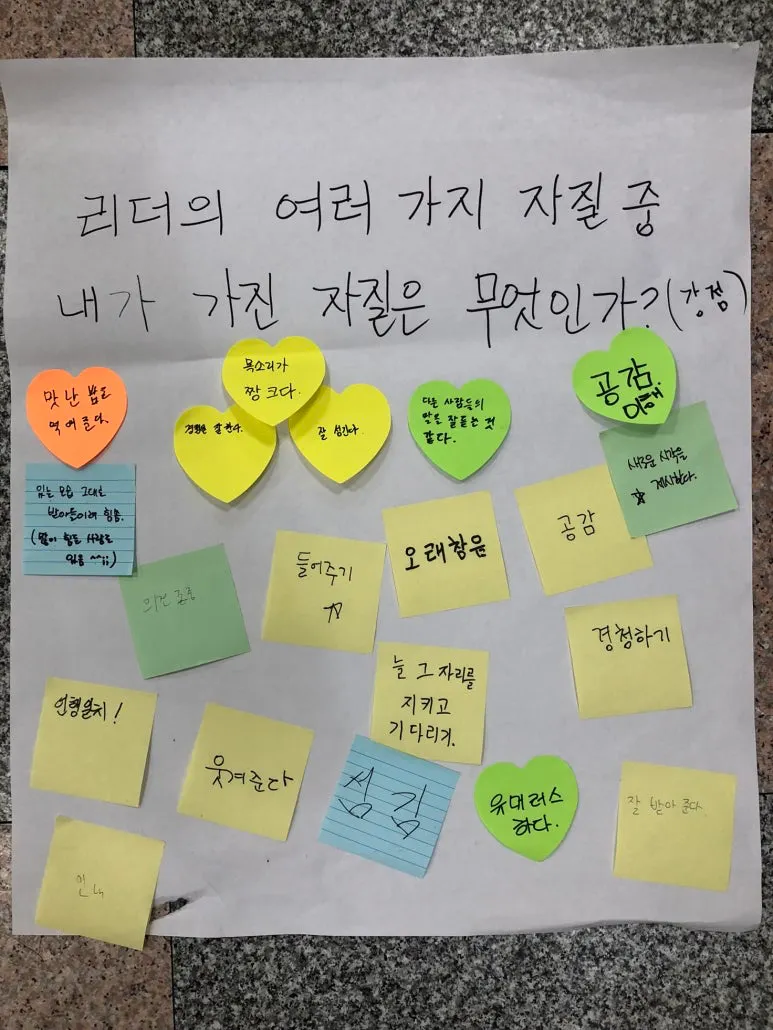 리더의 여러 가지 자질 중
내가 가진 자질은 무엇인가?(강점)
맛난 밥도
먹여준다.
목소리가
짱 크다.
경청을 잘 한다.
잘 섬긴다.
다른 사람들의
말을 잘 듣는 것
같다.
공감
이해.
새로운 시각을
☆ 제시한다.
있는 모습 그대로
받아들이려 힘씀.
(많이 힘든 사람도
있음 ^^;;)
의견 존중
들어주기
☆
오래참음
공감
경청하기
늘 그 자리를
지키고
기다리기.
언행일치!
웃겨준다
섬김
유대러스
하다.
잘 받아 준다.
인내